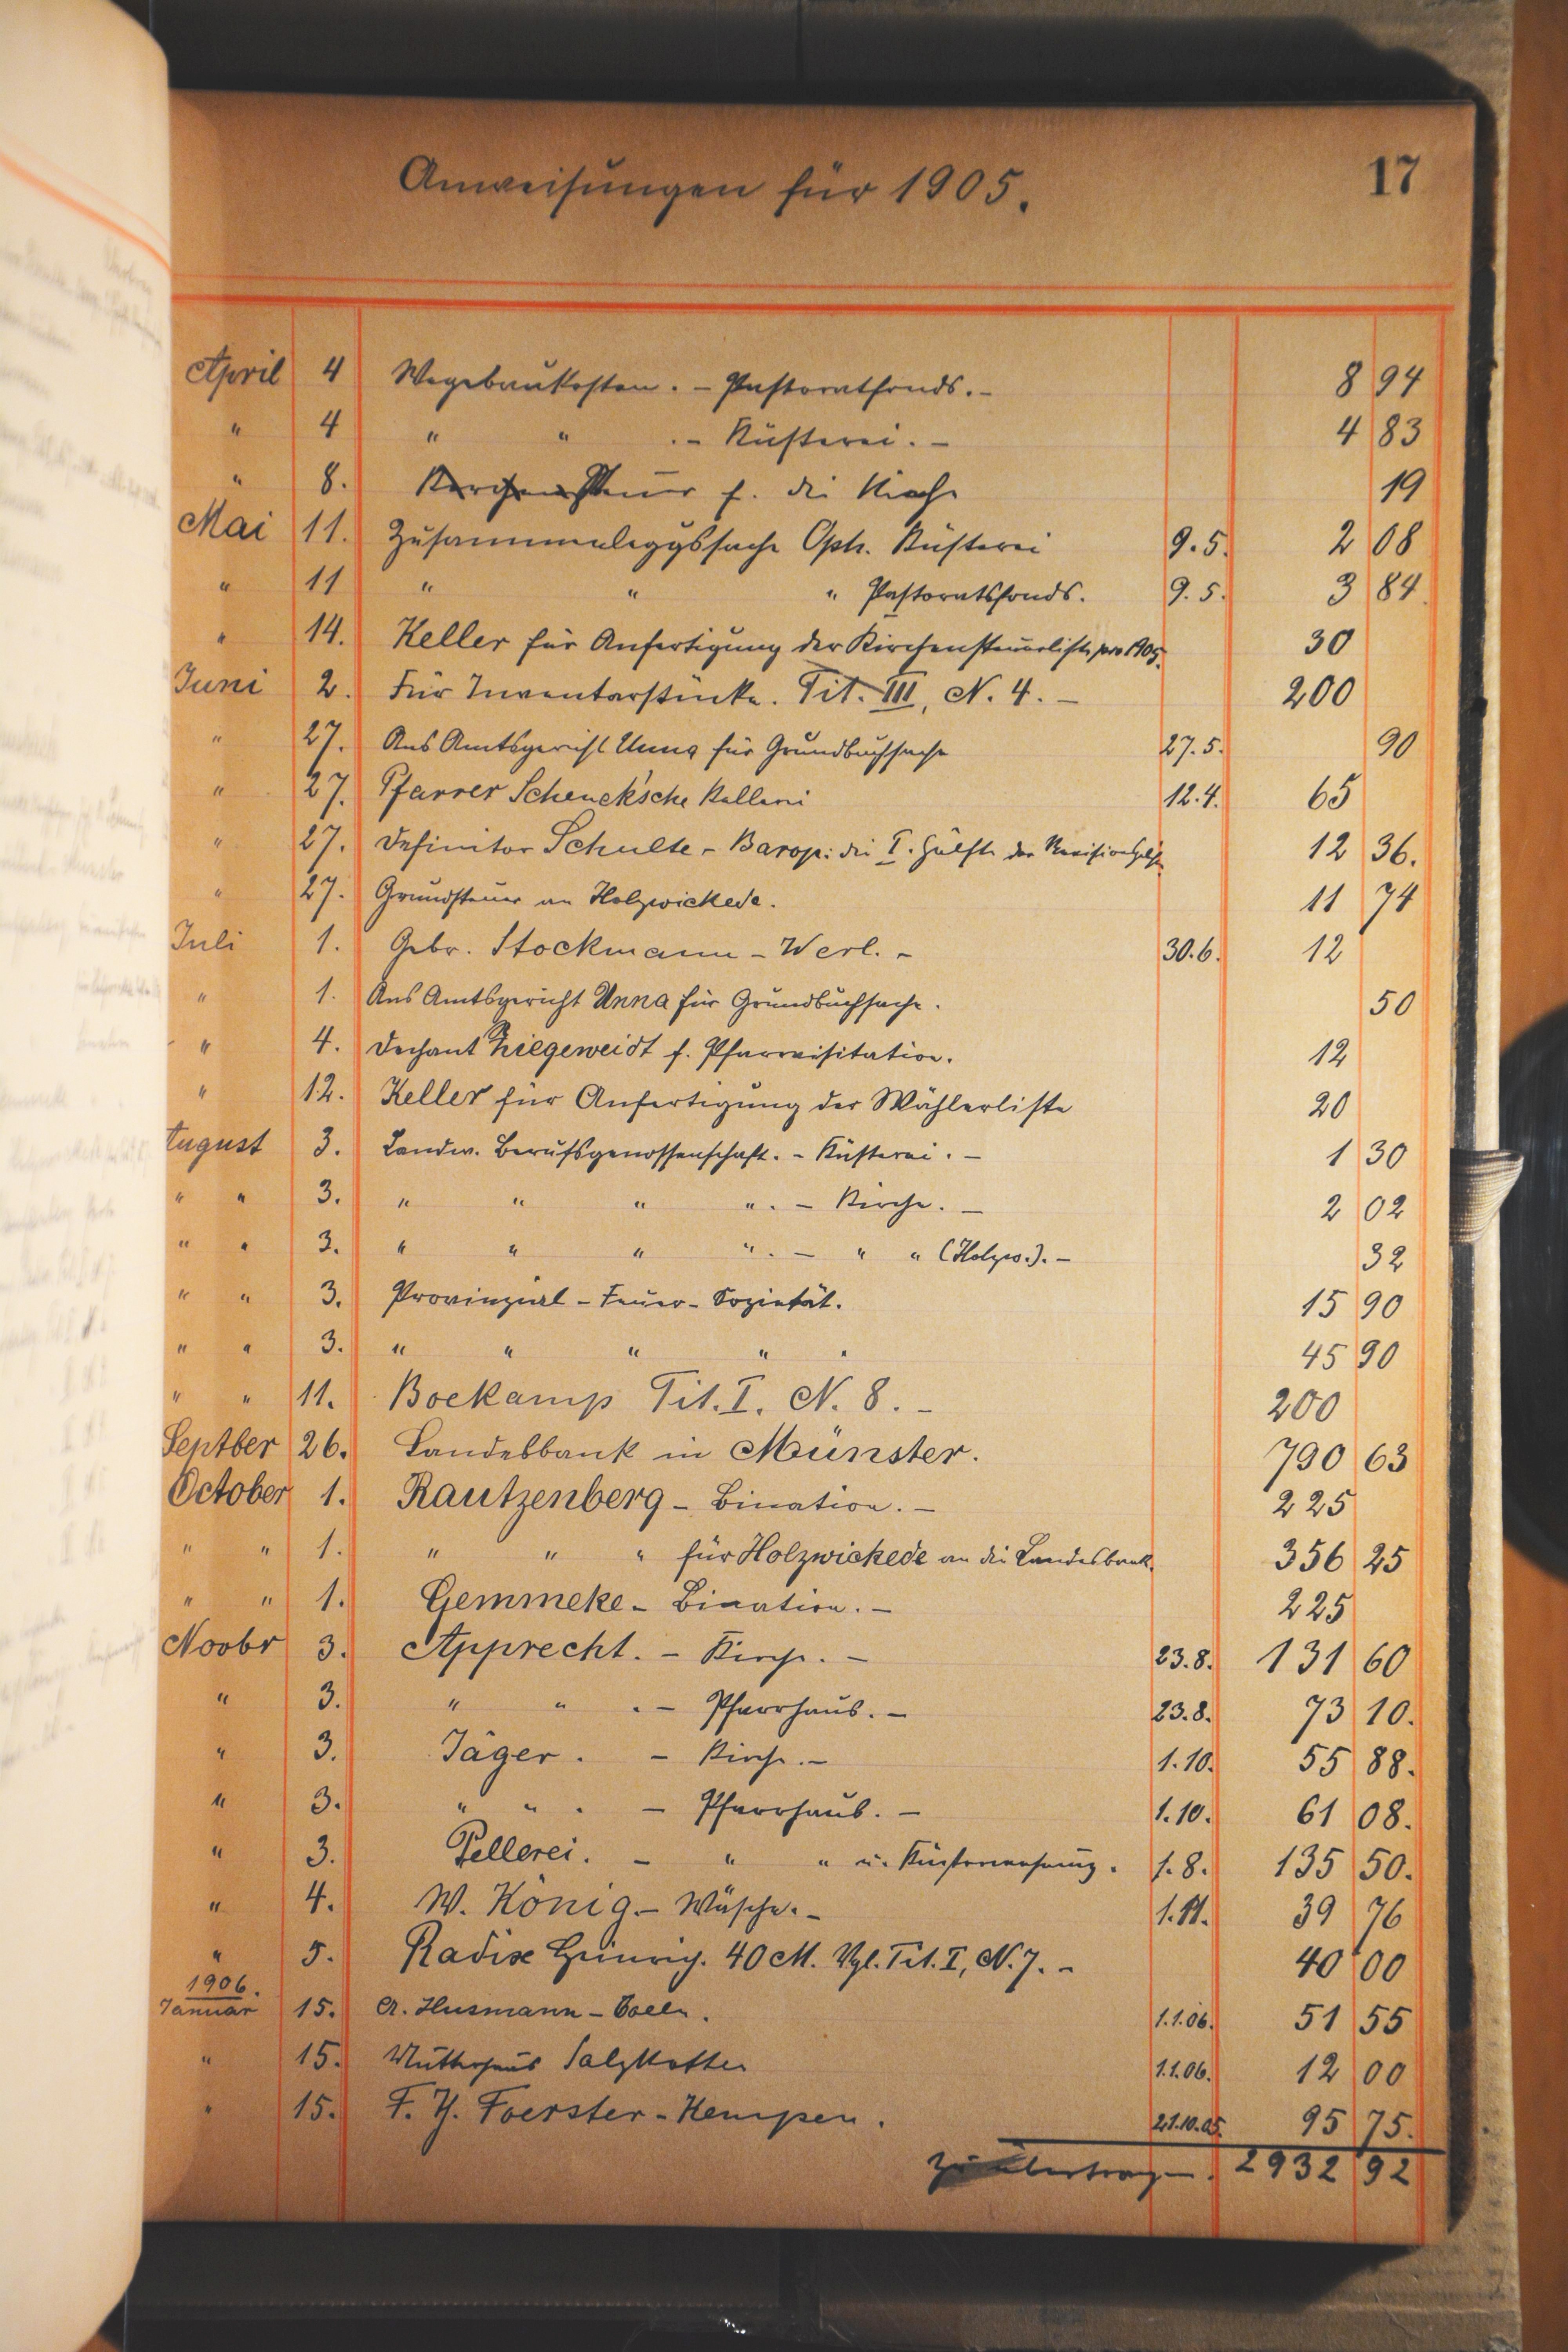 Anweisungen für 1905. 17
April 4 Wegebaukosten. - Pastoratfonds. - 8 94
" 4 " " . - Küsterei. - 4 83
" 8. Kirchensteuer f. die Kirche 19
Mai 11. Zusammenleggssache Oph. Küsterei 9.5. 2 08
" 11 " " " Pastoratsfonds. 9.5. 3 84
" 14. Keller für Anfertigung der Kirchensteuerliste pro 1905. 30
Juni 2. Für Inventarstücke. Tit. III, N. 4. - 200
" 27. Ans Amtsgericht Unna für Grundbuchsache 27.5. 90
" 27. Pfarrer Schenck'sche 12.4. 65
" 27. Definitor Schulte - Barop: die I. Hälfte der 12 36.
" 27. Grundsteuer an Holzwickede. 11 74
Juli 1. Gebr. Stockmann - Werl. - 30.6. 12
" 1. Ans Amtsgericht Unna für Grundbuchsache. 50
" 4. Dechant Ziegeweidt f. Pfarrvisitation. 12
" 12. Keller für Anfertigung der Wählerliste 20
August 3. Landw. Berufsgenossenschaft. - Küsterei. - 1 30
" " 3. " " " ". - Kirche. - 2 02
" " 3. " " " ". - " " (Holzw.). - 32
" " 3. Provinzial - Feuer - Sozietät. 15 90
" " 3. " " " " " 45 90
" " 11. Boekamp Tit. I. N. 8. - 200
Septber 26. Landesbank in Münster. 790 63
October 1. Rautzenberg - Bination. - 225
" " 1. " " " für Holzwickede an die Landesbank. 356 25
" " 1. Gemmeke - Bination. - 225
Novbr 3. Apprecht. - Kirche. - 23.8. 131 60
" 3. " " . - Pfarrhaus. - 23.8. 73 10.
" 3. Jäger. - Kirche. - 1.10. 55 88.
" 3. " " . - Pfarrhaus. - 1.10. 61 08.
" 3. Pellerei. - " " u. Küsterwohnung. 1.8. 135 50.
" 4. W. König. - Wäsche. - 1.11. 39 76
" 5. Radix Heinrich. 40 M. Vgl. Tit. I, N. 7. - 40 00
1906.
Januar 15. A. Husmann - Coeln. 1.1.06. 51 55
" 15. Mutterhaus Salzkotten 1.1.06. 12 00
" 15. F. H. Foerster - Kempen. 21.10.05. 95 75.
zu übertragen. 2932 92